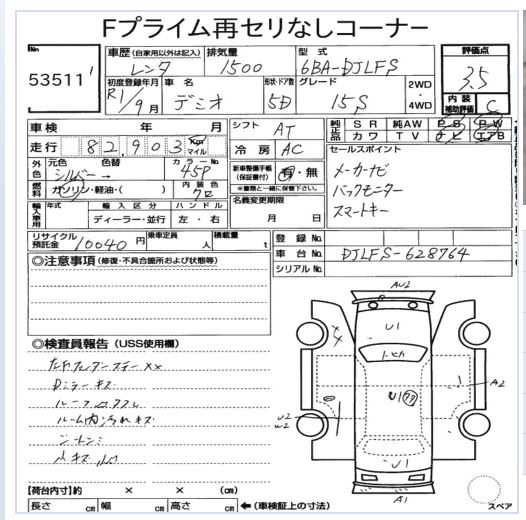 Fプライム再セリなしコーナー
No.
53511
車歴 (自家用以外は記入)
レンタ
排気量
1500
型式
6BA-DJLFS
評価点
3.5
初度登録年月
R1/9月
車名
デミオ
形状・ドア数
5D
グレード
15S
2WD
・
4WD
内装
補助評価
C
車検 年 月
シフト
AT
純正品
SR 純AW PS PW
カワ TV ナビ エアB
走行
82,903
Km
マイル
冷房
AC
セールスポイント
メーカーナビ
バックモニター
スマートキー
外色
元色
シルバー→
色替
カラーNo.
45P
新車整備手帳
(保証書付)
有・無
※書類と一緒に保管下さい。
燃料
ガソリン・軽油・( )
内装色
クロ
名義変更期限
月 日
輸入車用
年式
輸入区分
ディーラー・並行
ハンドル
左・右
リサイクル
預託金
10040円
乗車定員
人
積載量
t
登録No.
車台No.
DJLFS-628764
シリアルNo.
◎注意事項 (修復・不具合箇所および状態等)
◎検査員報告 (USS使用欄)
Dミラーキズ
ルーム内汚れキズ
AU2
U1
トビカ
A2
U1
U2
W2
U1
A1
【荷台内寸】約 × × (cm)
長さ cm 幅 cm 高さ cm ←(車検証上の寸法)
スペア